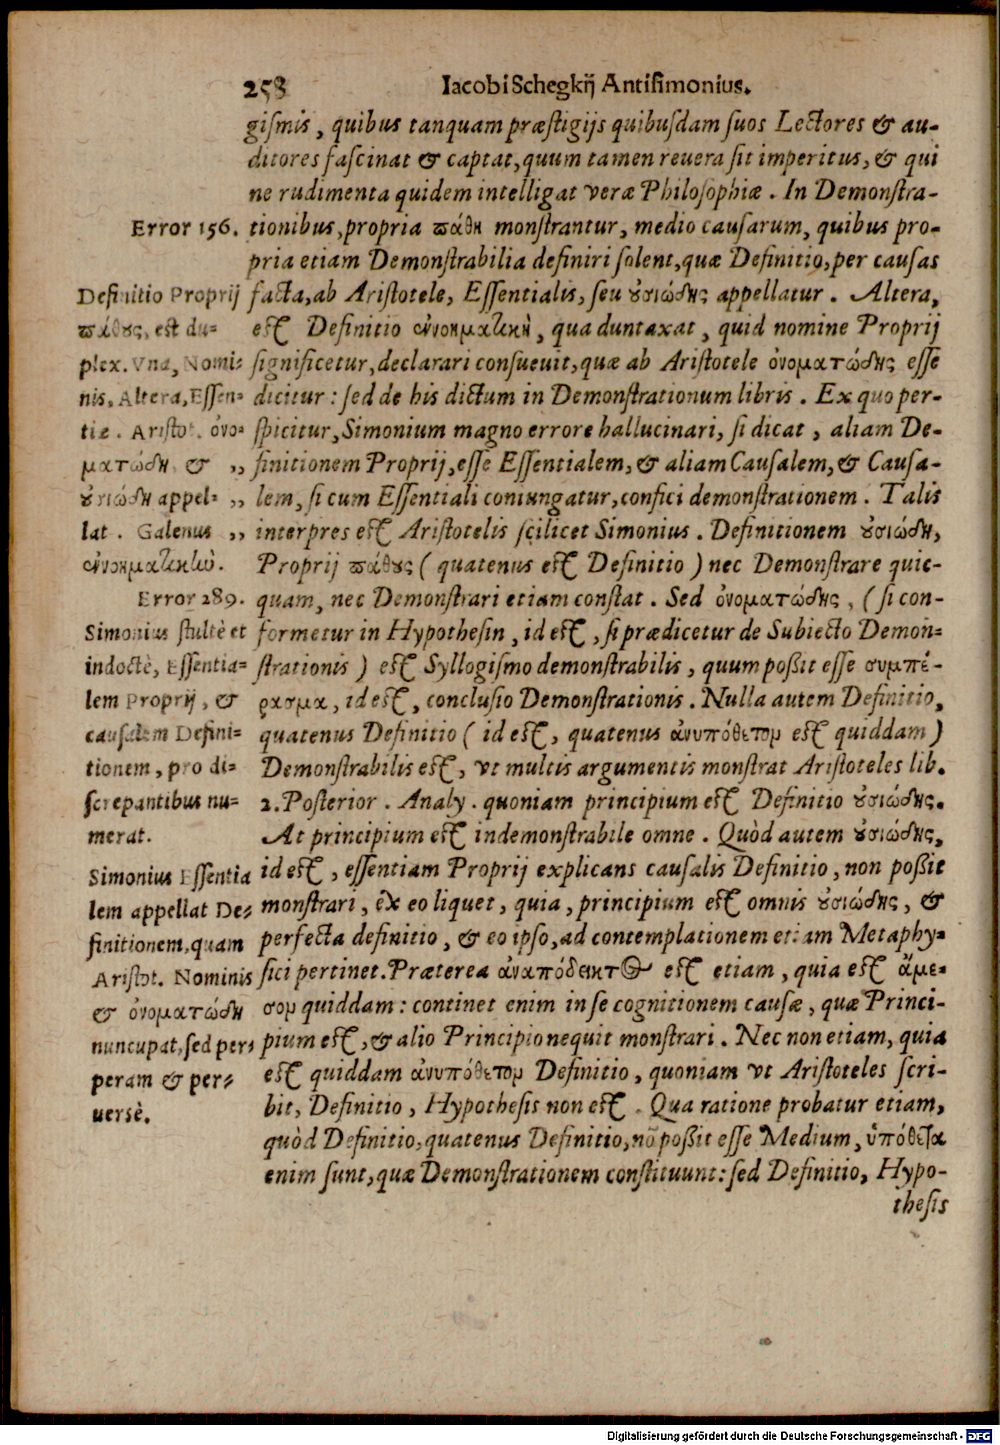 258 Iacobi Schegkij Antisimonius.
giſmis, quibus tanquam præſtigijs quibuſdam ſuos Lectores & au-
ditores faſcinat & captat, quum tamen reuera ſit imperitus, & qui
ne rudimenta quidem intelligat veræ Philoſophiæ. In Demonſtra-
tionibus, propria πάθη monſtrantur, medio cauſarum, quibus pro-
pria etiam Demonſtrabilia definiri ſolent, quæ Definitio, per cauſas
facta, ab Ariſtotele, Eſſentialis, ſeu ȣ̓σιώδης appellatur. Altera,
eſt Definitio ἐννοηματικὴ, qua duntaxat, quid nomine Proprij
significetur, declarari conſueuit, quæ ab Ariſtotele ὀνοματώδης eſſe
dicitur: ſed de his dictum in Demonſtrationum libris. Ex quo per-
ſpicitur, Simonium magno errore hallucinari, ſi dicat, aliam De-
„ finitionem Proprij, eſſe Eſſentialem, & aliam Cauſalem, & Cauſa-
„ lem, ſi cum Eſſentiali coniungatur, confici demonſtrationem. Talis
„ interpres eſt Ariſtotelis ſcilicet Simonius. Definitionem ȣ̓σιώδη,
Proprij πάθȣς (quatenus eſt Definitio) nec Demonſtrare quic-
quam, nec Demonſtrari etiam conſtat. Sed ὀνοματώδης, (ſi con-
formetur in Hypotheſin, id eſt, ſi prædicetur de Subiecto Demon-
ſtrationis) eſt Syllogiſmo demonſtrabilis, quum poßit eſſe συμπέ-
ρασμα, id eſt, concluſio Demonſtrationis. Nulla autem Definitio,
quatenus Definitio (id eſt, quatenus ἀνυπόθετον eſt quiddam)
Demonſtrabilis eſt, vt multis argumentis monſtrat Ariſtoteles lib.
2. Poſterior. Analy. quoniam principium eſt Definitio ȣ̓σιώδης.
At principium eſt indemonſtrabile omne. Quòd autem ȣ̓σιώδης,
id eſt, eſſentiam Proprij explicans cauſalis Definitio, non poßit
monſtrari, ex eo liquet, quia, principium eſt omnis ȣ̓σιώδης, &
perfecta definitio, & eo ipſo, ad contemplationem etiam Metaphy-
ſici pertinet. Præterea ἀναπόδεικτος eſt etiam, quia eſt ἄμε-
σον quiddam: continet enim in ſe cognitionem cauſæ, quæ Princi-
pium eſt, & alio Principio nequit monſtrari. Nec non etiam, quia
eſt quiddam ἀνυπόθετον Definitio, quoniam vt Ariſtoteles ſcri-
bit, Definitio, Hypotheſis non eſt. Qua ratione probatur etiam,
quòd Definitio, quatenus Definitio, nō poßit eſſe Medium, ὑπόθεσα
enim ſunt, quæ Demonſtrationem conſtituunt: ſed Definitio, Hypo-
theſis
Error 156.
Definitio Proprij
πάθȣς, eſt du-
plex. Vna, Nomi-
nis, Altera, Eſſen-
tiæ. Ariſtot. ὀνο-
ματώδη &
ȣ̓σιώδη appel-
lat. Galenus
ἐννοηματικὼ.
Error 289.
Simonius ſtultè et
indoctè, Eſſentia-
lem Proprij, &
cauſalem Defini-
tionem, pro di-
ſcrepantibus nu-
merat.
Simonius Eſſentia
lem appellat De-
finitionem, quam
Ariſtot. Nominis
& ὀνοματώδη
nuncupat, ſed per-
peram & per-
uersè.
Digitalisierung gefördert durch die Deutsche Forschungsgemeinschaft - DFG